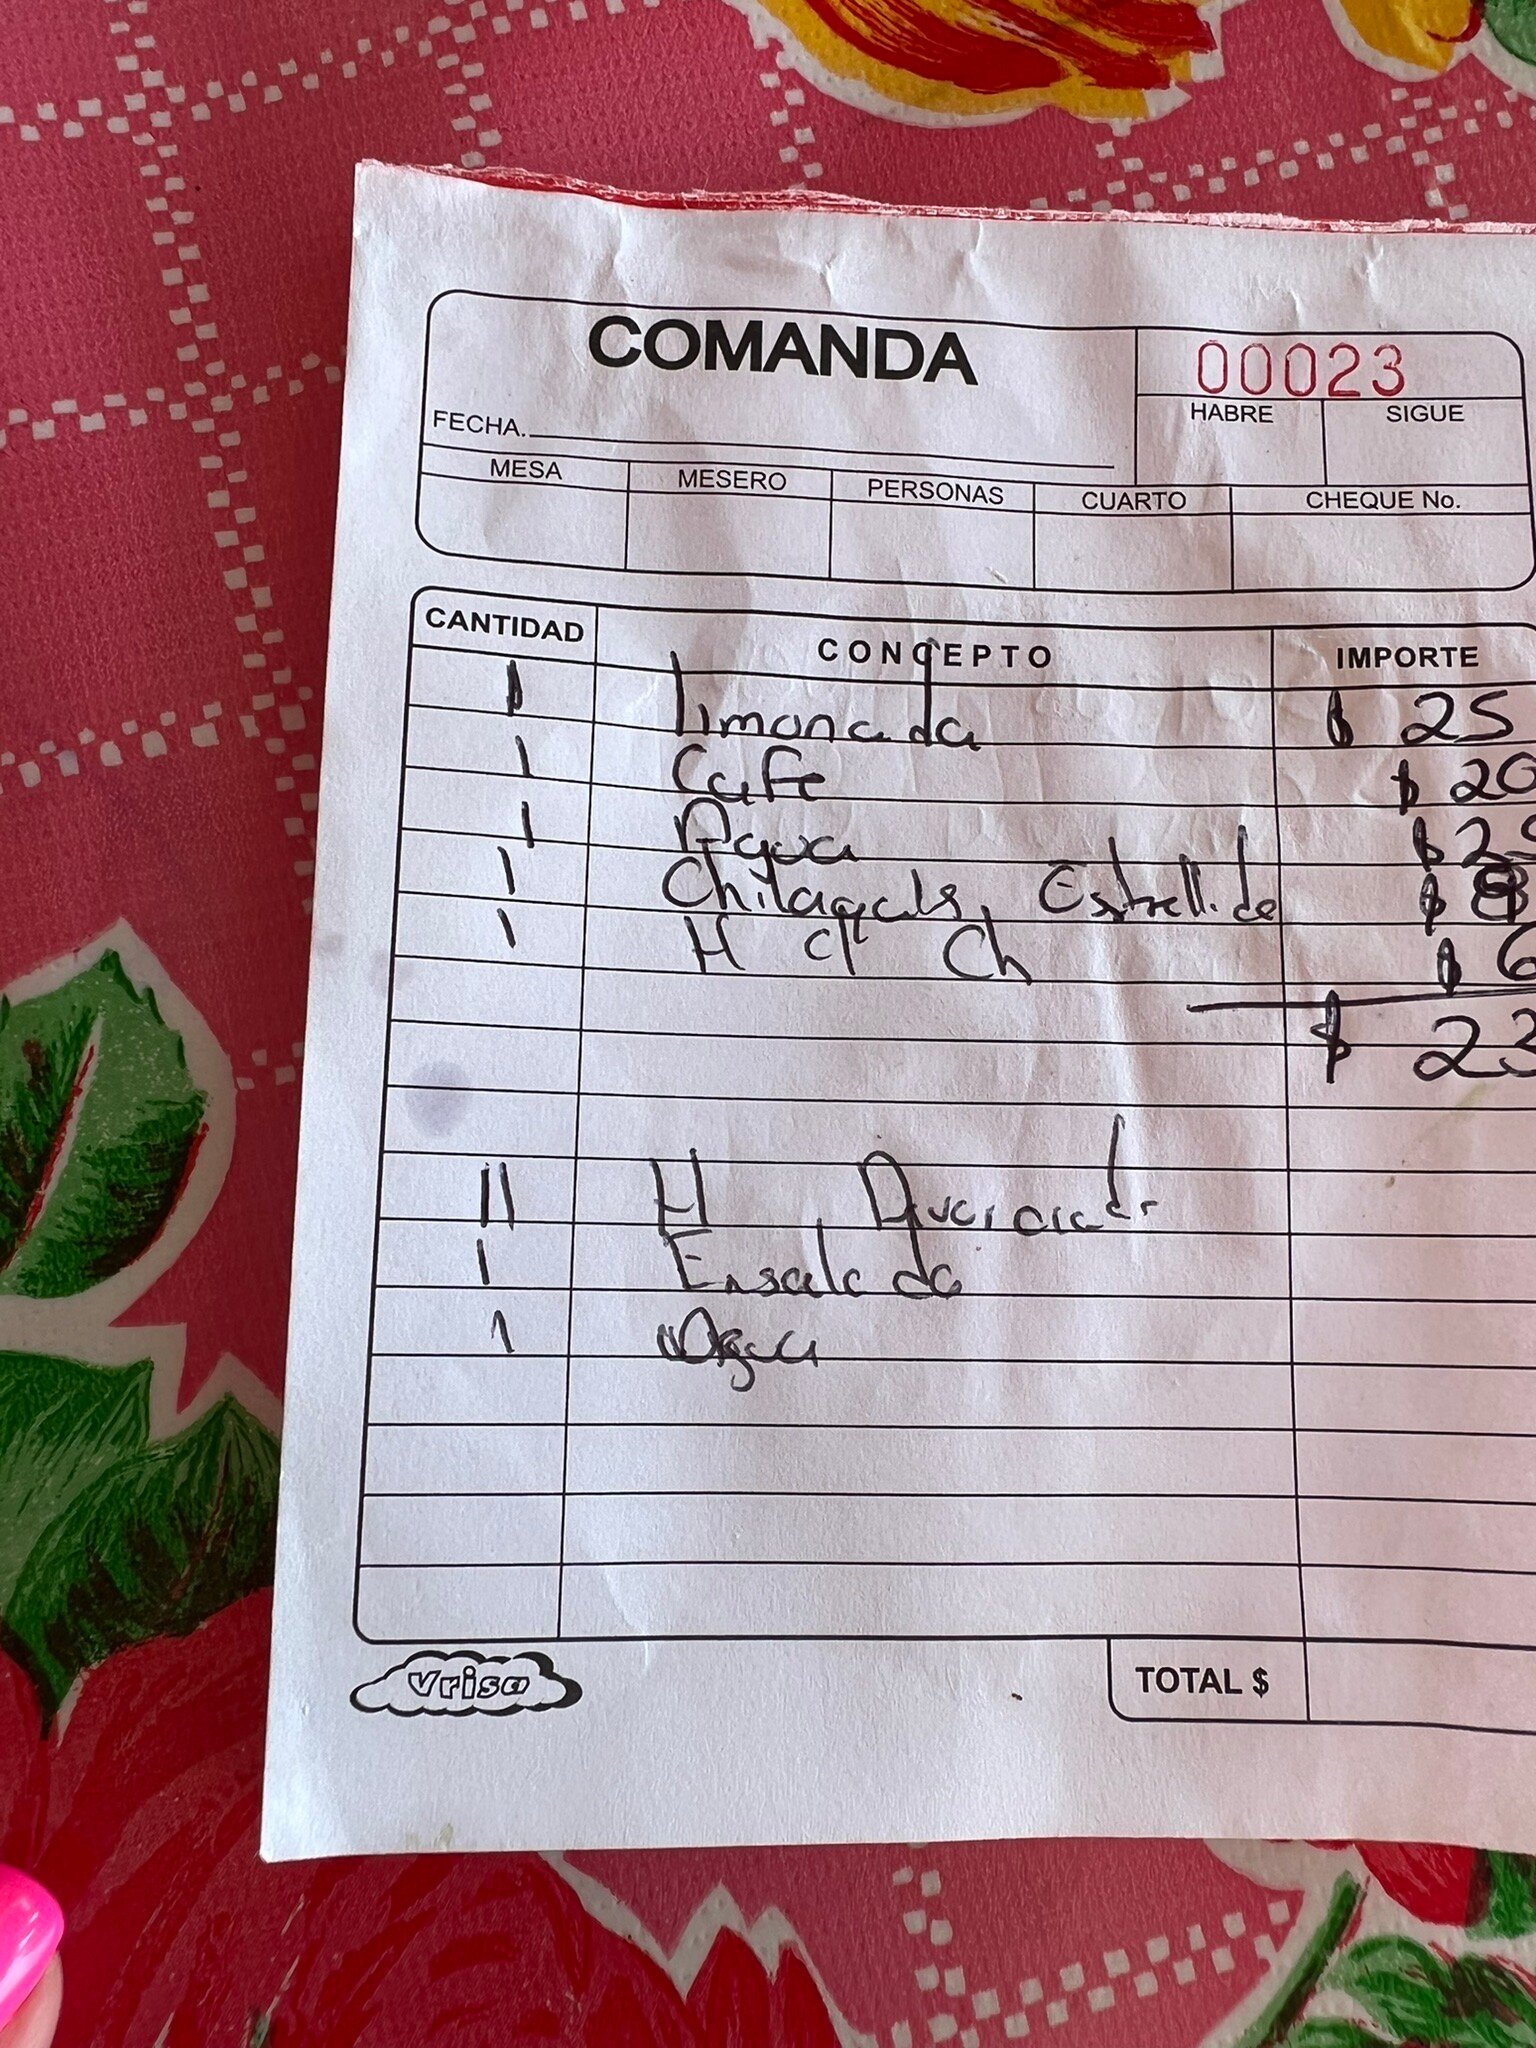 COMANDA
00023
HABRE SIGUE
FECHA.
MESA MESERO PERSONAS CUARTO CHEQUE No.
CANTIDAD CONCEPTO IMPORTE
1 limonada $ 25
1 Cafe $ 20
1 Agua $ 2
1 $
1 H c/ Ch $ 6
$ 23
11 H
1 Ensalada
1 Agua
Vrisa
TOTAL $